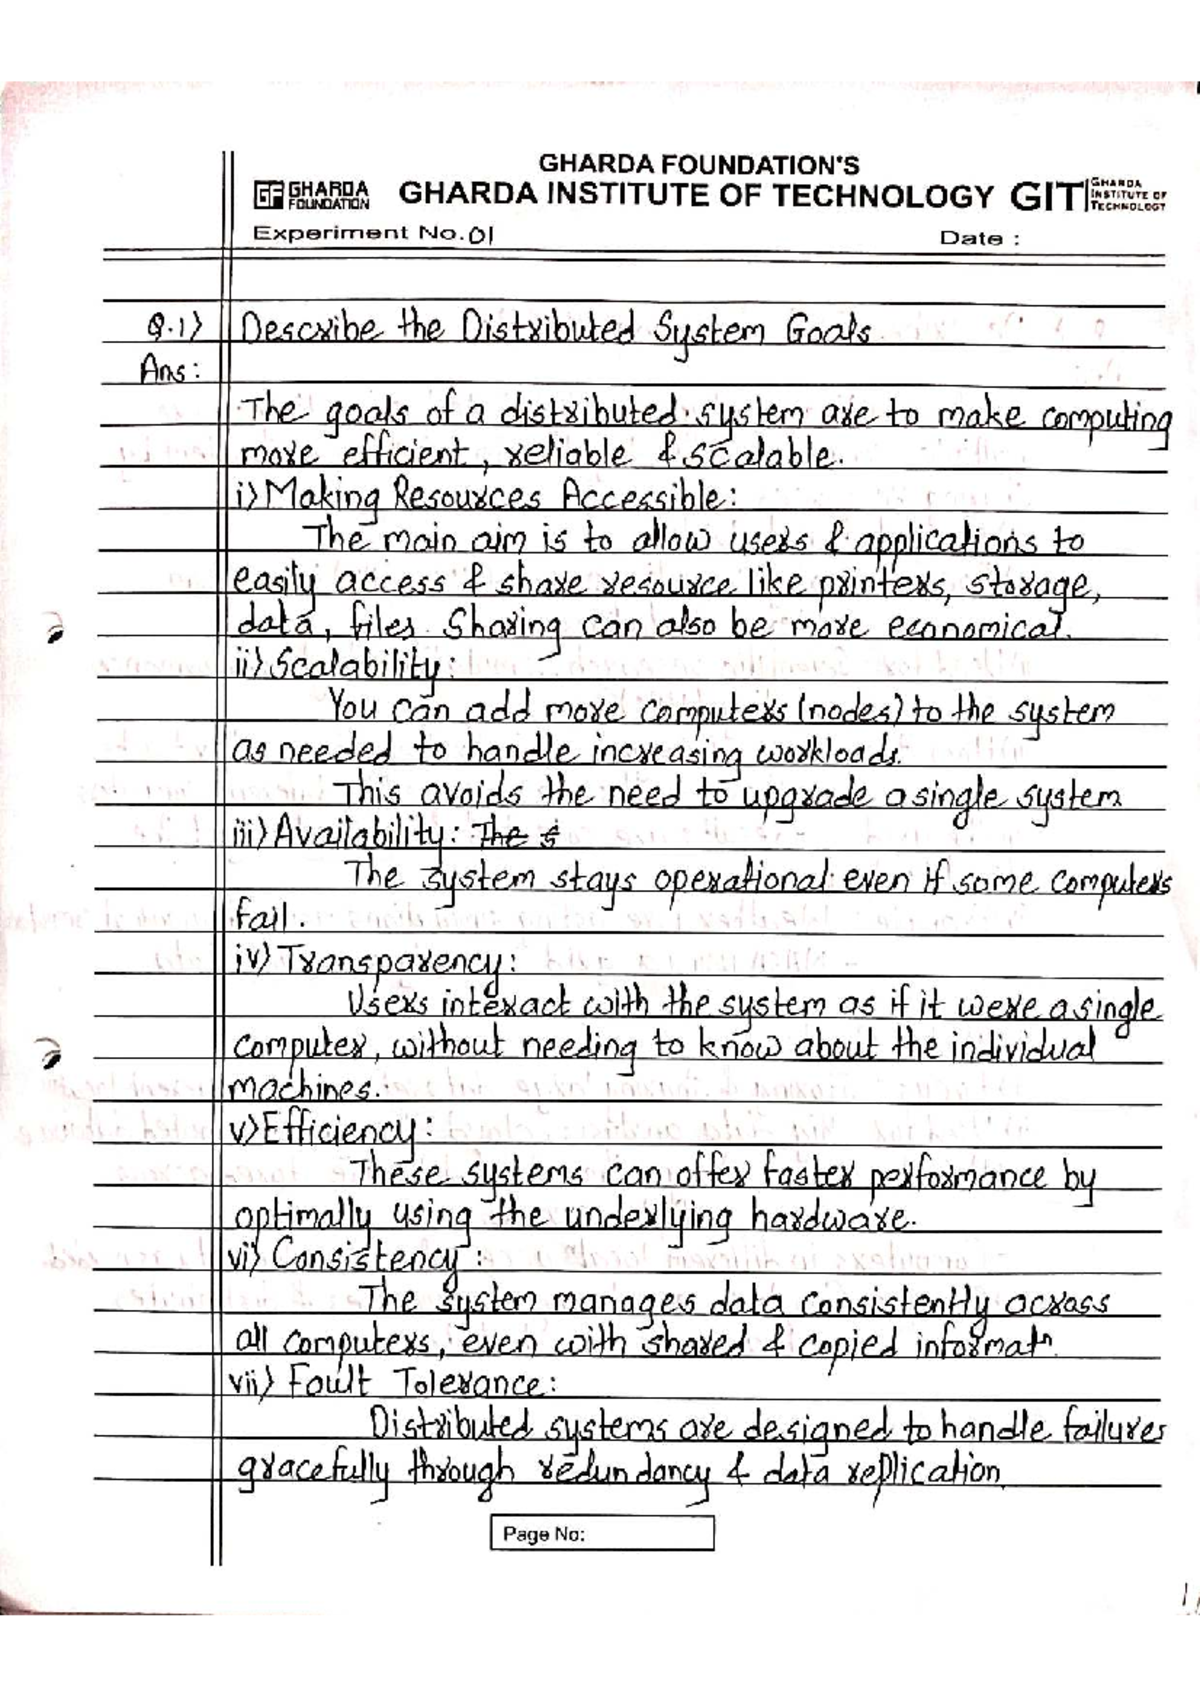 GHARDA FOUNDATION'S
GF GHARDA FOUNDATION GHARDA INSTITUTE OF TECHNOLOGY GIT GHARDA INSTITUTE OF TECHNOLOGY
Experiment No. 01 Date :
Q.1) Describe the Distributed System Goals
Ans:
The goals of a distributed system are to make computing
more efficient, reliable & scalable.
i) Making Resources Accessible:
The main aim is to allow users & applications to
easily access & share resource like printers, storage,
data, files. Sharing can also be more economical.
ii) Scalability:
You can add more computers (nodes) to the system
as needed to handle increasing workloads.
This avoids the need to upgrade a single system
iii) Availability: The s
The system stays operational even if some computers
fail.
iv) Transparency:
Users interact with the system as if it were a single
computer, without needing to know about the individual
machines.
v) Efficiency:
These systems can offer faster performance by
optimally using the underlying hardware.
vi) Consistency:
The system manages data consistently across
all computers, even with shared & copied informatn.
vii) Foult Tolerance:
Distributed systems are designed to handle failures
gracefully through redundancy & data replication.
Page No: